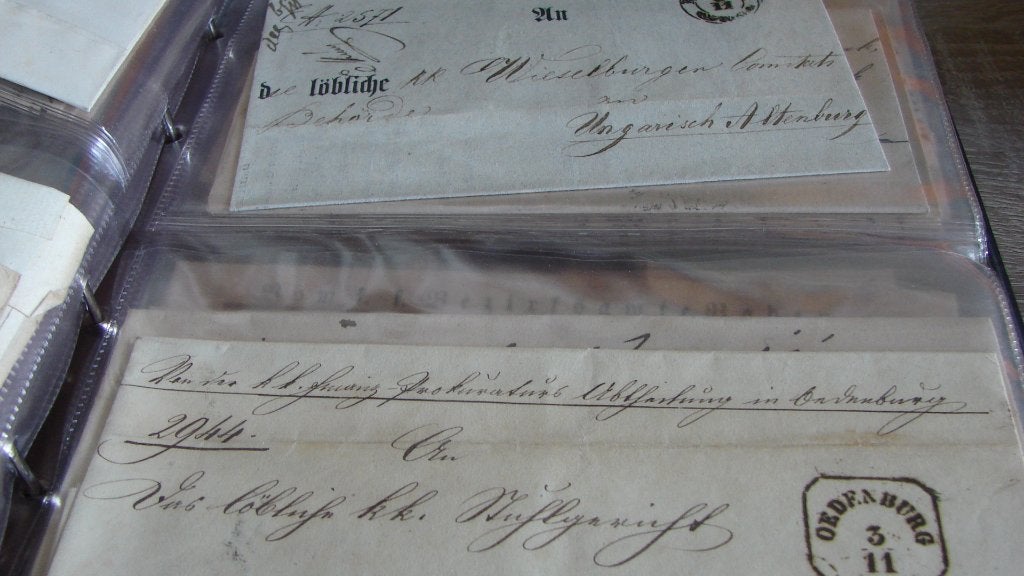 A. 2571
An
11
d löbliche kk Wieselburger Comitats
Behörde
in
Ungarisch Altenburg
Von der k.k. Finanz Prokuraturs Abtheilung in Oedenburg
2944.
An
Das löbliche kk. Stuhlgericht
OEDENBURG
3
11